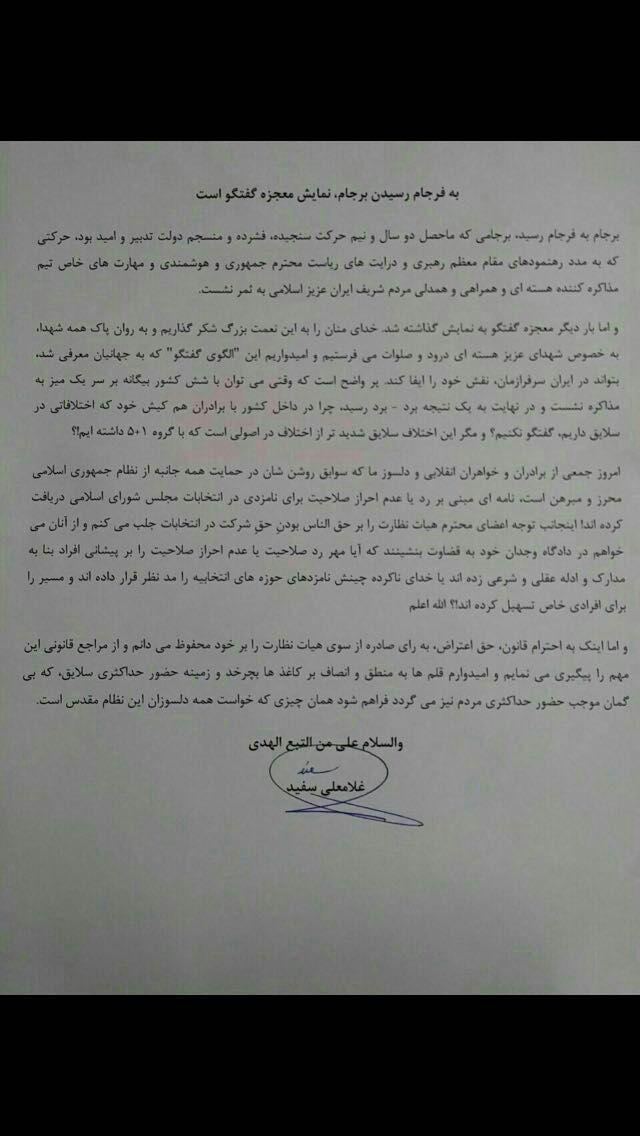 به فرجام رسیدن برجام، نمایش معجزه گفتگو است
برجام به فرجام رسید، برجامی که ماحصل دو سال و نیم حرکت سنجیده، فشرده و منسجم دولت تدبیر و امید بود، حرکتی
که به مدد رهنمودهای مقام معظم رهبری و درایت های ریاست محترم جمهوری و هوشمندی و مهارت های خاص تیم
مذاکره کننده هسته ای و همراهی و همدلی مردم شریف ایران عزیز اسلامی به ثمر نشست.
و اما بار دیگر معجزه گفتگو به نمایش گذاشته شد. خدای منان را به این نعمت بزرگ شکر گذاریم و به روان پاک همه شهدا،
به خصوص شهدای عزیز هسته ای درود و صلوات می فرستیم و امیدواریم این "الگوی گفتگو" که به جهانیان معرفی شد،
بتواند در ایران سرفرازمان، نقش خود را ایفا کند. پر واضح است که وقتی می توان با شش کشور بیگانه بر سر یک میز به
مذاکره نشست و در نهایت به یک نتیجه برد - برد رسید، چرا در داخل کشور با برادران هم کیش خود که اختلافاتی در
سلایق داریم، گفتگو نکنیم؟ و مگر این اختلاف سلایق شدید تر از اختلاف در اصولی است که با گروه ۱+۵ داشته ایم!؟
امروز جمعی از برادران و خواهران انقلابی و دلسوز ما که سوابق روشن شان در حمایت همه جانبه از نظام جمهوری اسلامی
محرز و مبرهن است، نامه ای مبنی بر رد یا عدم احراز صلاحیت برای نامزدی در انتخابات مجلس شورای اسلامی دریافت
کرده اند! اینجانب توجه اعضای محترم هیات نظارت را بر حق الناس بودنِ حقِ شرکت در انتخابات جلب می کنم و از آنان می
خواهم در دادگاه وجدان خود به قضاوت بنشینند که آیا مهر رد صلاحیت یا عدم احراز صلاحیت را بر پیشانی افراد بنا به
مدارک و ادله عقلی و شرعی زده اند یا خدای ناکرده چینش نامزدهای حوزه های انتخابیه را مد نظر قرار داده اند و مسیر را
برای افرادی خاص تسهیل کرده اند!؟ الله اعلم
و اما اینک به احترام قانون، حق اعتراض، به رای صادره از سوی هیات نظارت را بر خود محفوظ می دانم و از مراجع قانونی این
مهم را پیگیری می نمایم و امیدوارم قلم ها به منطق و انصاف بر کاغذ ها بچرخد و زمینه حضور حداکثری سلایق، که بی
گمان موجب حضور حداکثری مردم نیز می گردد فراهم شود همان چیزی که خواست همه دلسوزان این نظام مقدس است.
والسلام علی من التبع الهدی
غلامعلی سفید